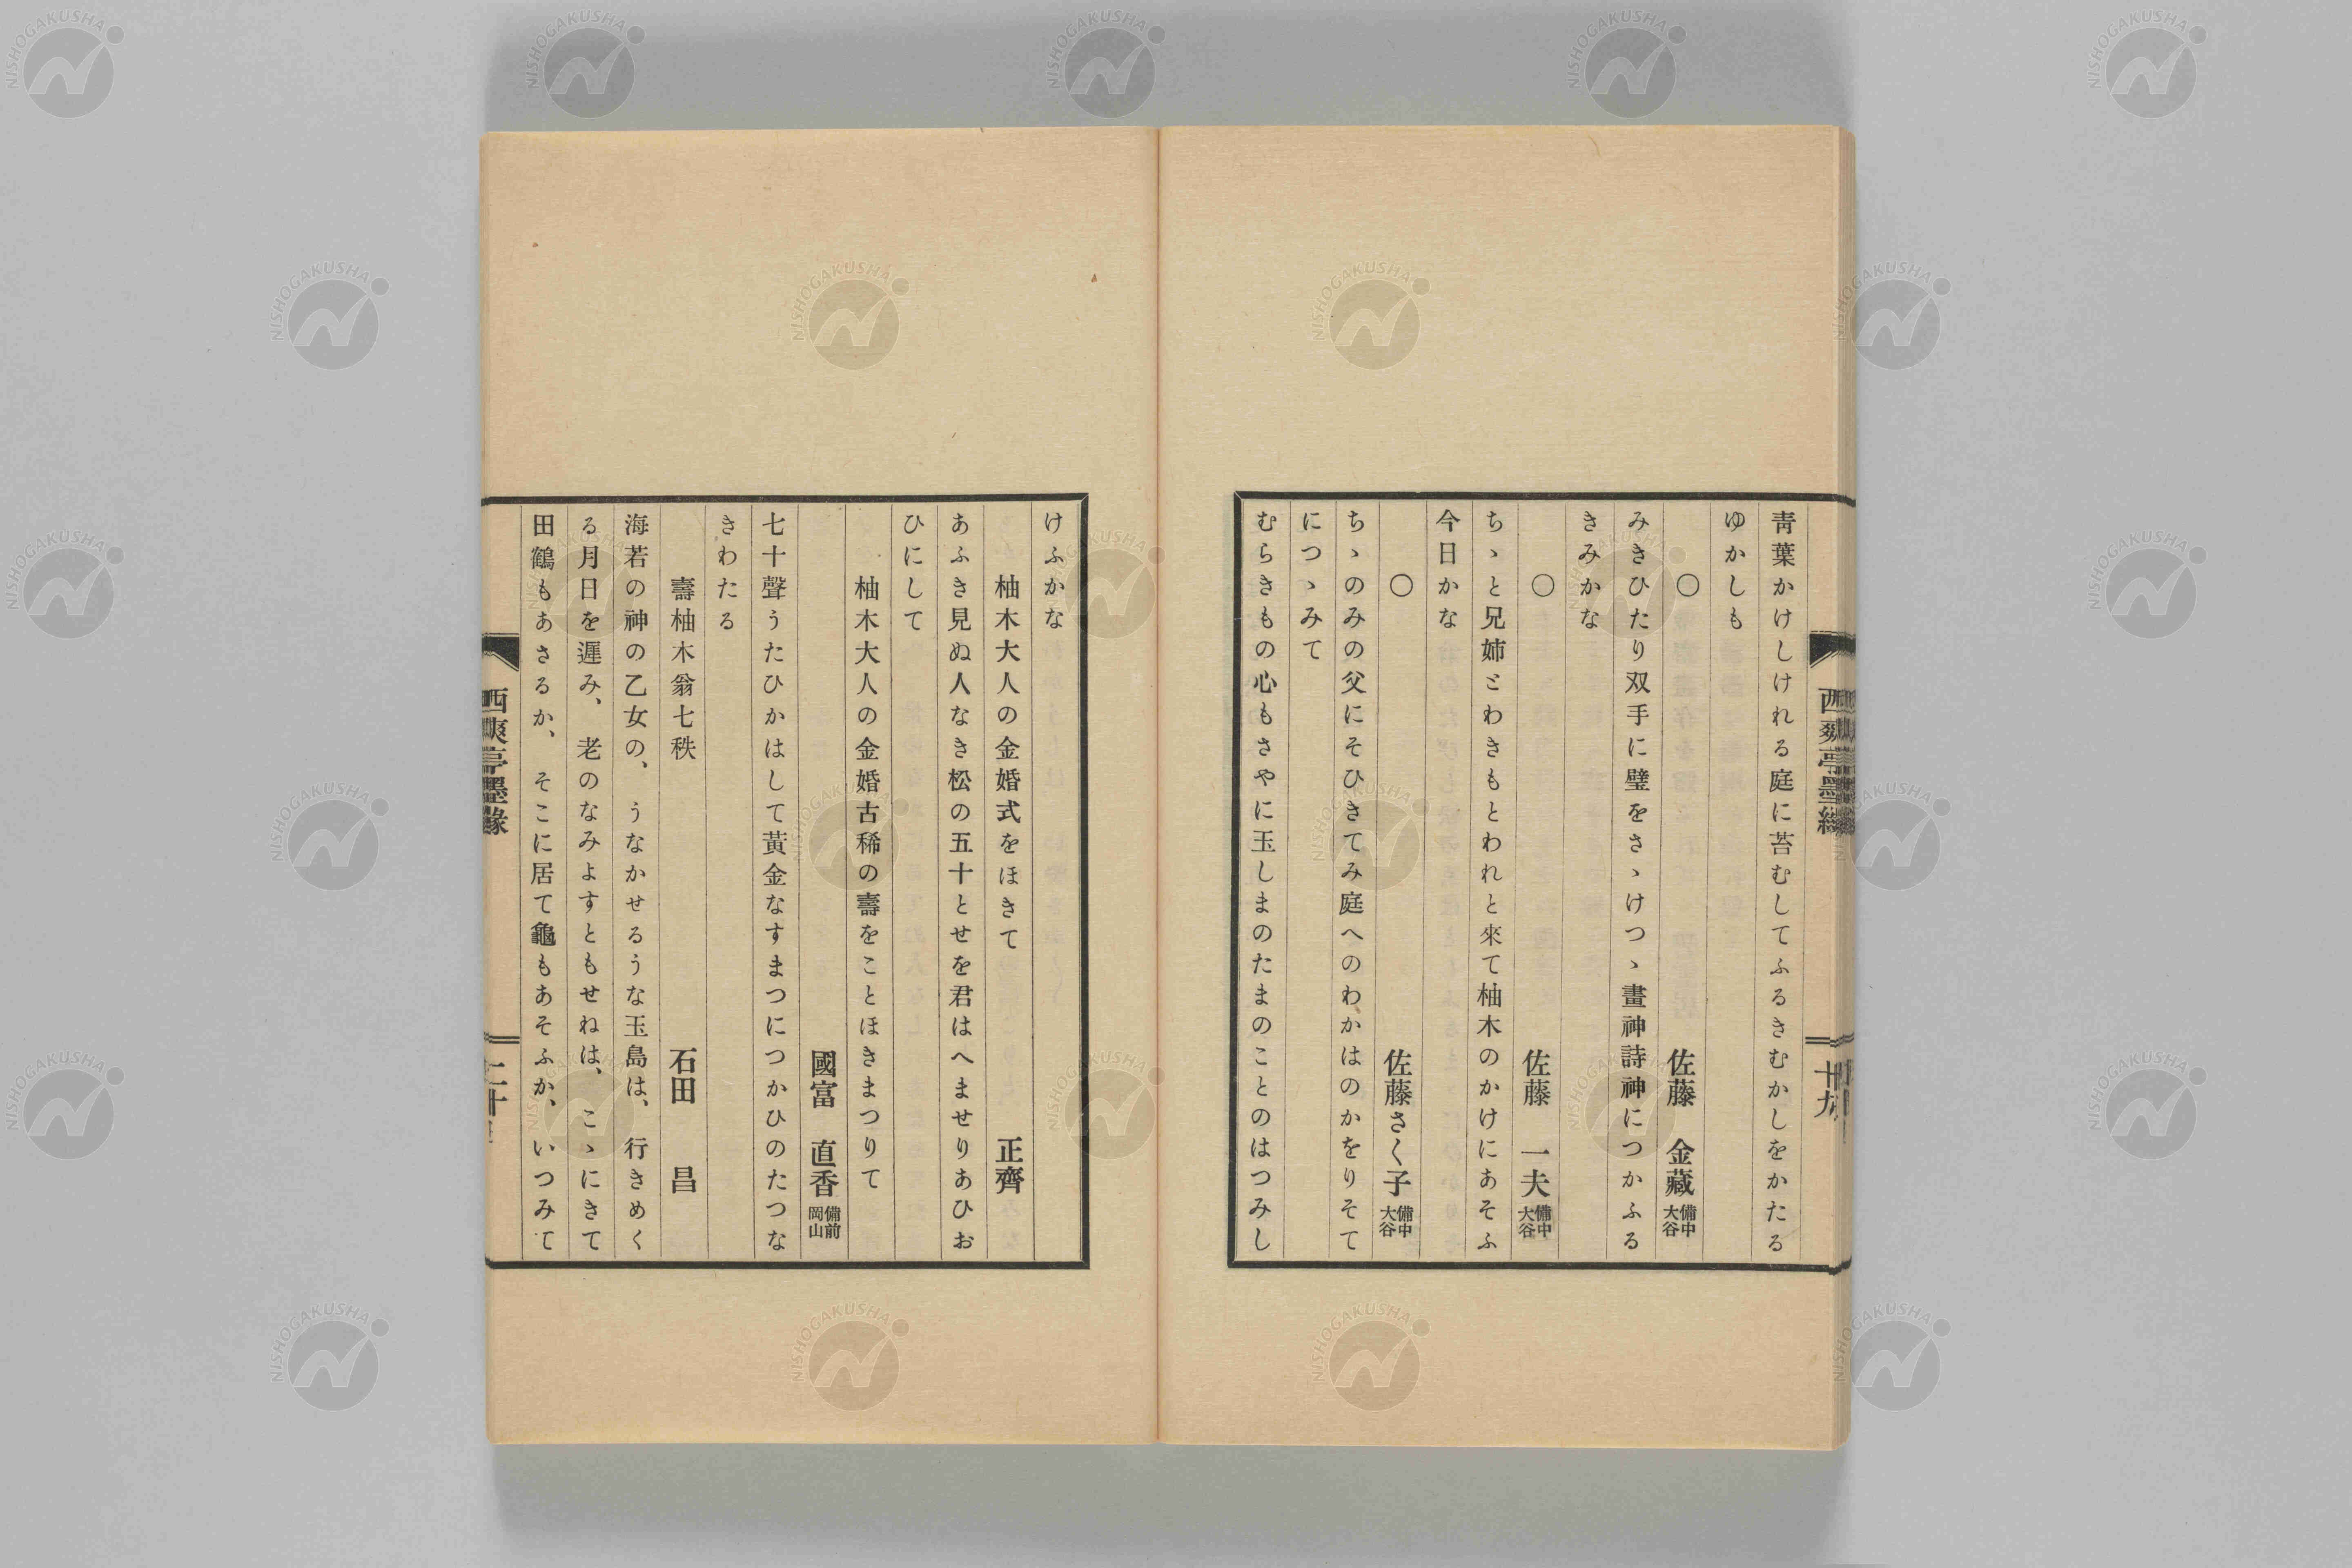 青葉かけしけれる庭に苔むしてふるきむかしをかたる
ゆかしも
〇　佐藤　金藏 備中大谷
みきひたり双手に璧をさゝけつゝ畫神詩神につかふる
きみかな
〇　佐藤　一夫 備中大谷
ちゝと兄姉とわきもとわれと來て柚木のかけにあそふ
今日かな
〇　佐藤さく子 備中大谷
ちゝのみの父にそひきてみ庭へのわかはのかをりそて
につゝみて
むらきもの心もさやに玉しまのたまのことのはつみし
けふかな
柚木大人の金婚式をほきて　正齊
あふき見ぬ人なき松の五十とせを君はへませりあひお
ひにして
柚木大人の金婚古稀の壽をことほきまつりて
國富　直香 備前岡山
七十聲うたひかはして黃金なすまつにつかひのたつな
きわたる
壽柚木翁七秩　石田　昌
海若の神の乙女の、うなかせるうな玉島は、行きめく
る月日を遲み、老のなみよすともせねは、こゝにきて
田鶴もあさるか、そこに居て龜もあそふか、いつみて
西爽亭墨緣
二十
西爽亭墨
十九
NISHOGAKUSHA